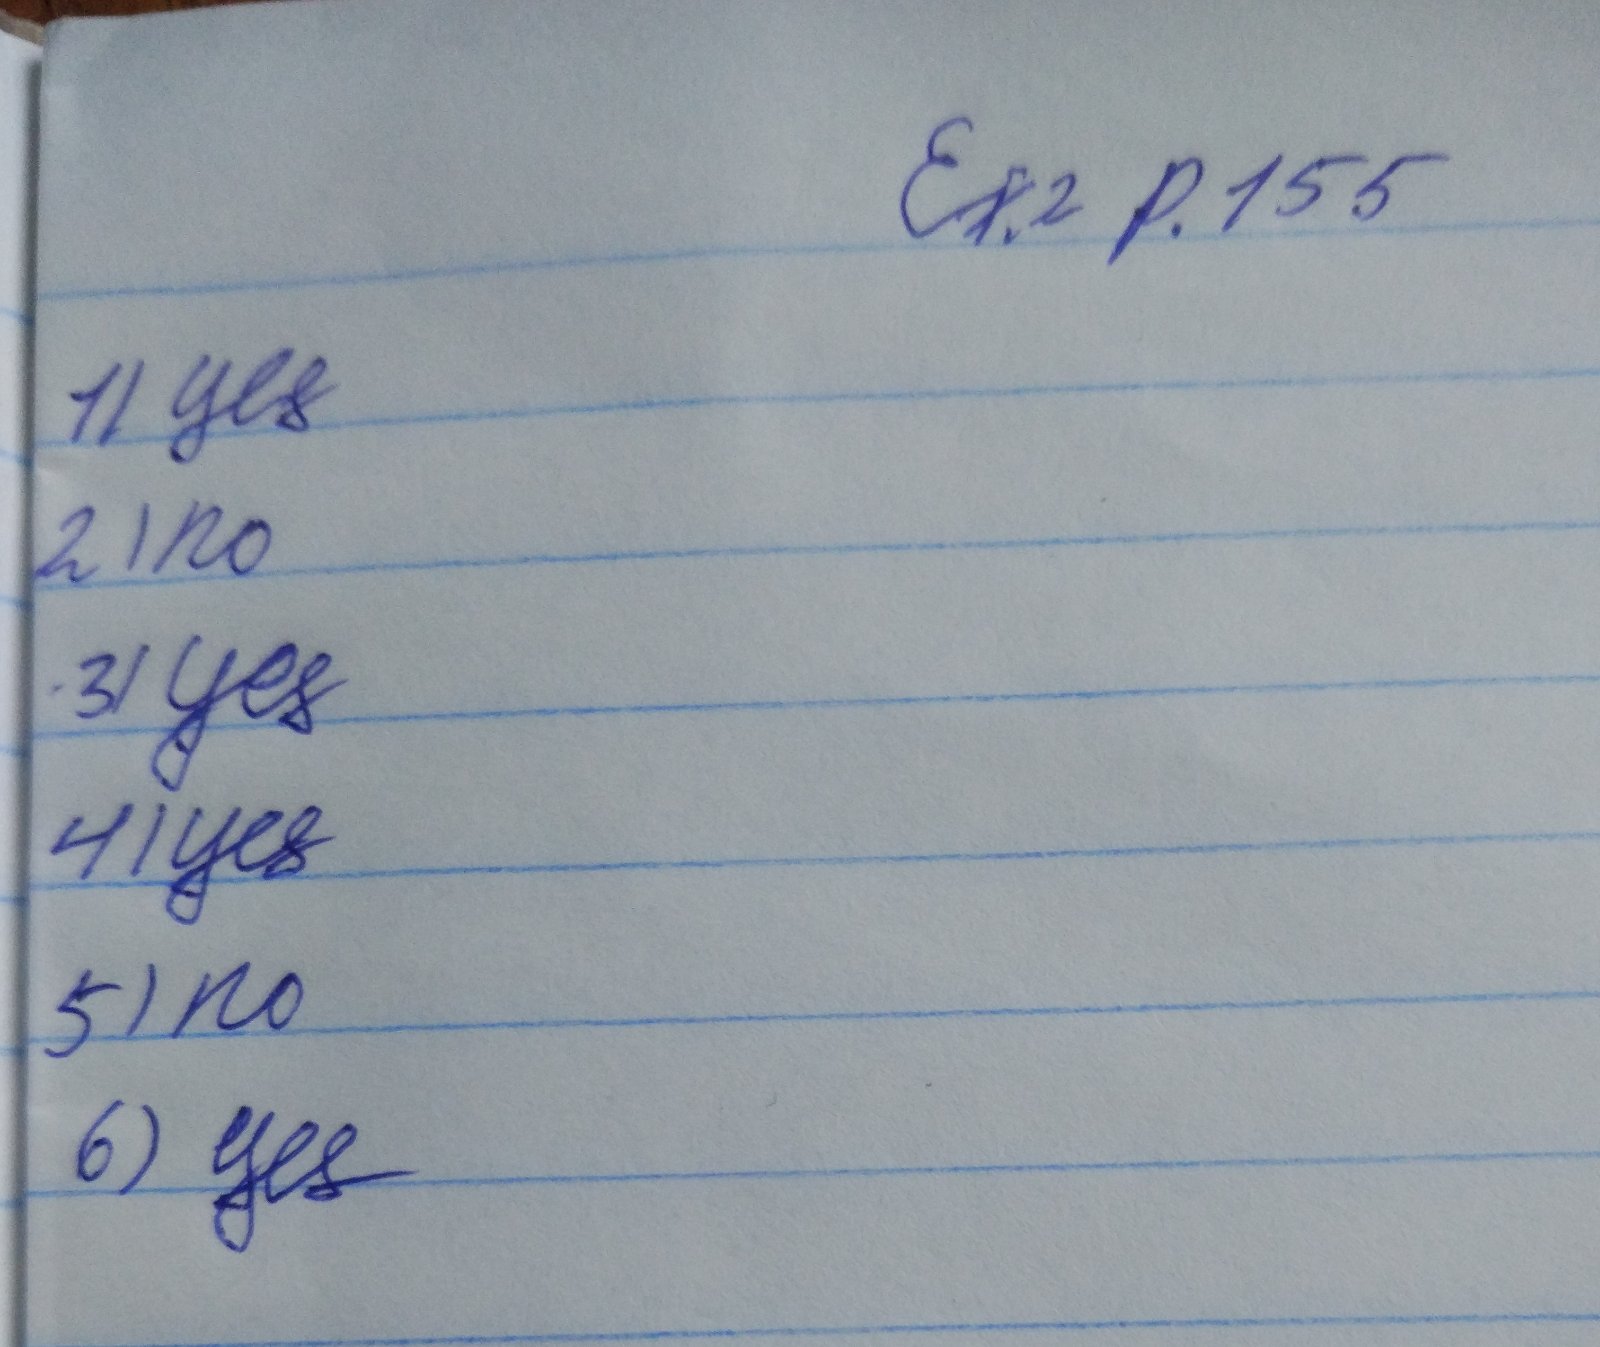 Ex.2 p.155
1) yes
2) no
3) yes
4) yes
5) no
6) yes